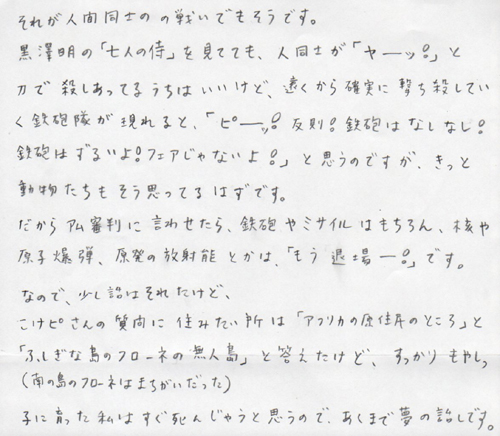 それが人間同士のの戦いでもそうです。
黒澤明の「七人の侍」を見てても、人同士が「ヤーッ!」と
刀で殺しあってるうちはいいけど、遠くから確実に撃ち殺してい
く鉄砲隊が現れると、「ピーッ!反則!鉄砲はなしなし!
鉄砲はずるいよ!フェアじゃないよ!」と思うのですが、きっと
動物たちもそう思ってるはずです。
だからアム審判に言わせたら、鉄砲やミサイルはもちろん、核や
原子爆弾、原発の放射能とかは、「もう退場ー!」です。
なので、少し話はそれたけど、
こけピさんの質問に住みたい所は「アフリカの原住民のところ」と
「ふしぎな島のフローネの無人島」と答えたけど、すっかりもやしっ
(南の島のフローネはまちがいだった)
子に育った私はすぐ死んじゃうと思うので、あくまで夢の話しです。